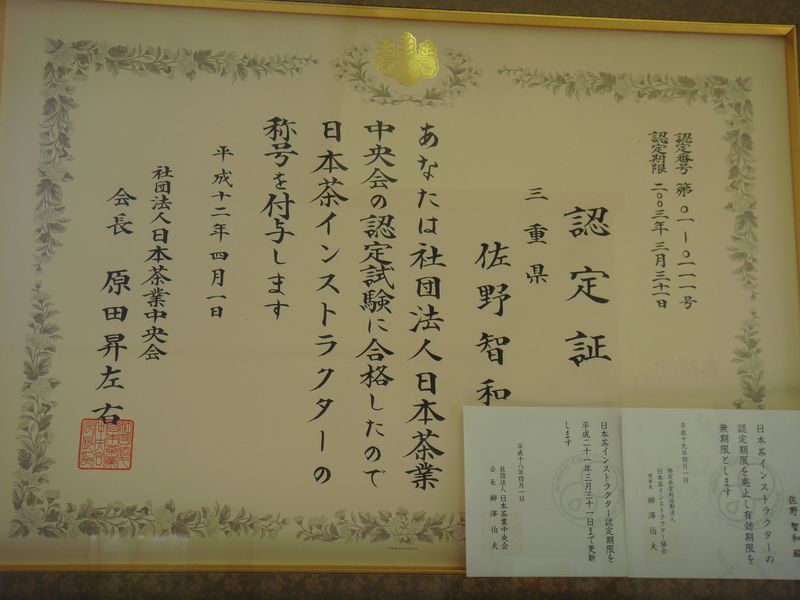 認定番号 第〇一ー〇一一一号
認定期限 二〇〇三年三月三十一日
認定証
三重県
佐野智和
あなたは社団法人日本茶業
中央会の認定試験に合格したので
日本茶インストラクターの
称号を付与します
平成十二年四月一日
社団法人日本茶業中央会
会長 原田昇左右
佐野 智和 殿
日本茶インストラクターの
認定期限を廃止し有効期限を
無期限とします
平成十九年四月一日
特定非営利活動法人
日本茶インストラクター協会
理事長 柳澤伯夫
日本茶インストラクター認定期限を
平成二十一年三月三十一日まで更新
します
平成十八年四月一日
社団法人日本茶業中央会
会長 柳澤伯夫